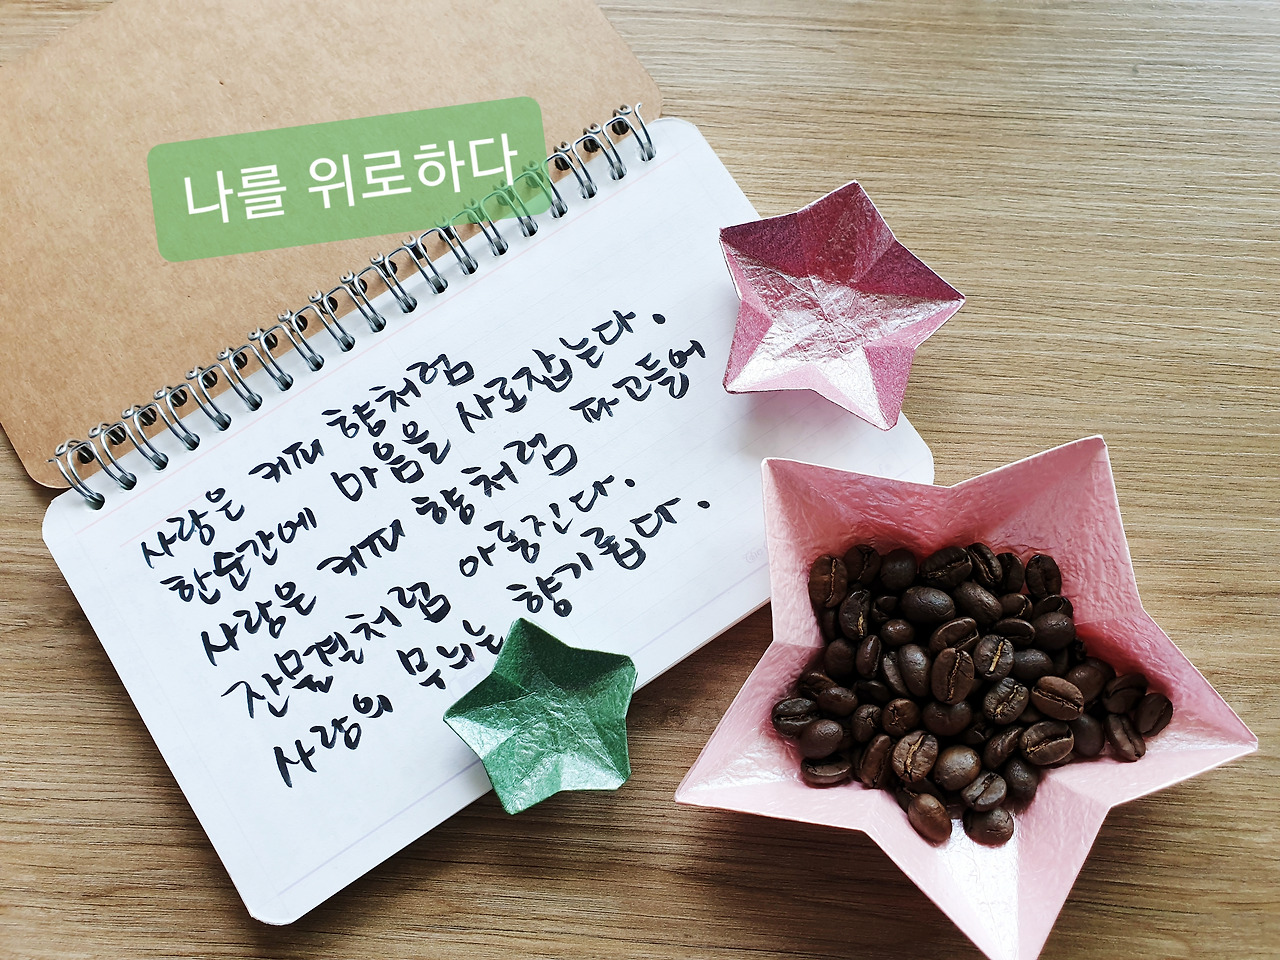 나를 위로하다
사랑은 커피 향처럼
한순간에 마음을 사로잡는다.
사랑은 커피 향처럼 파고들어
잔물결처럼 아롱진다.
사랑의 무늬는 향기롭다.